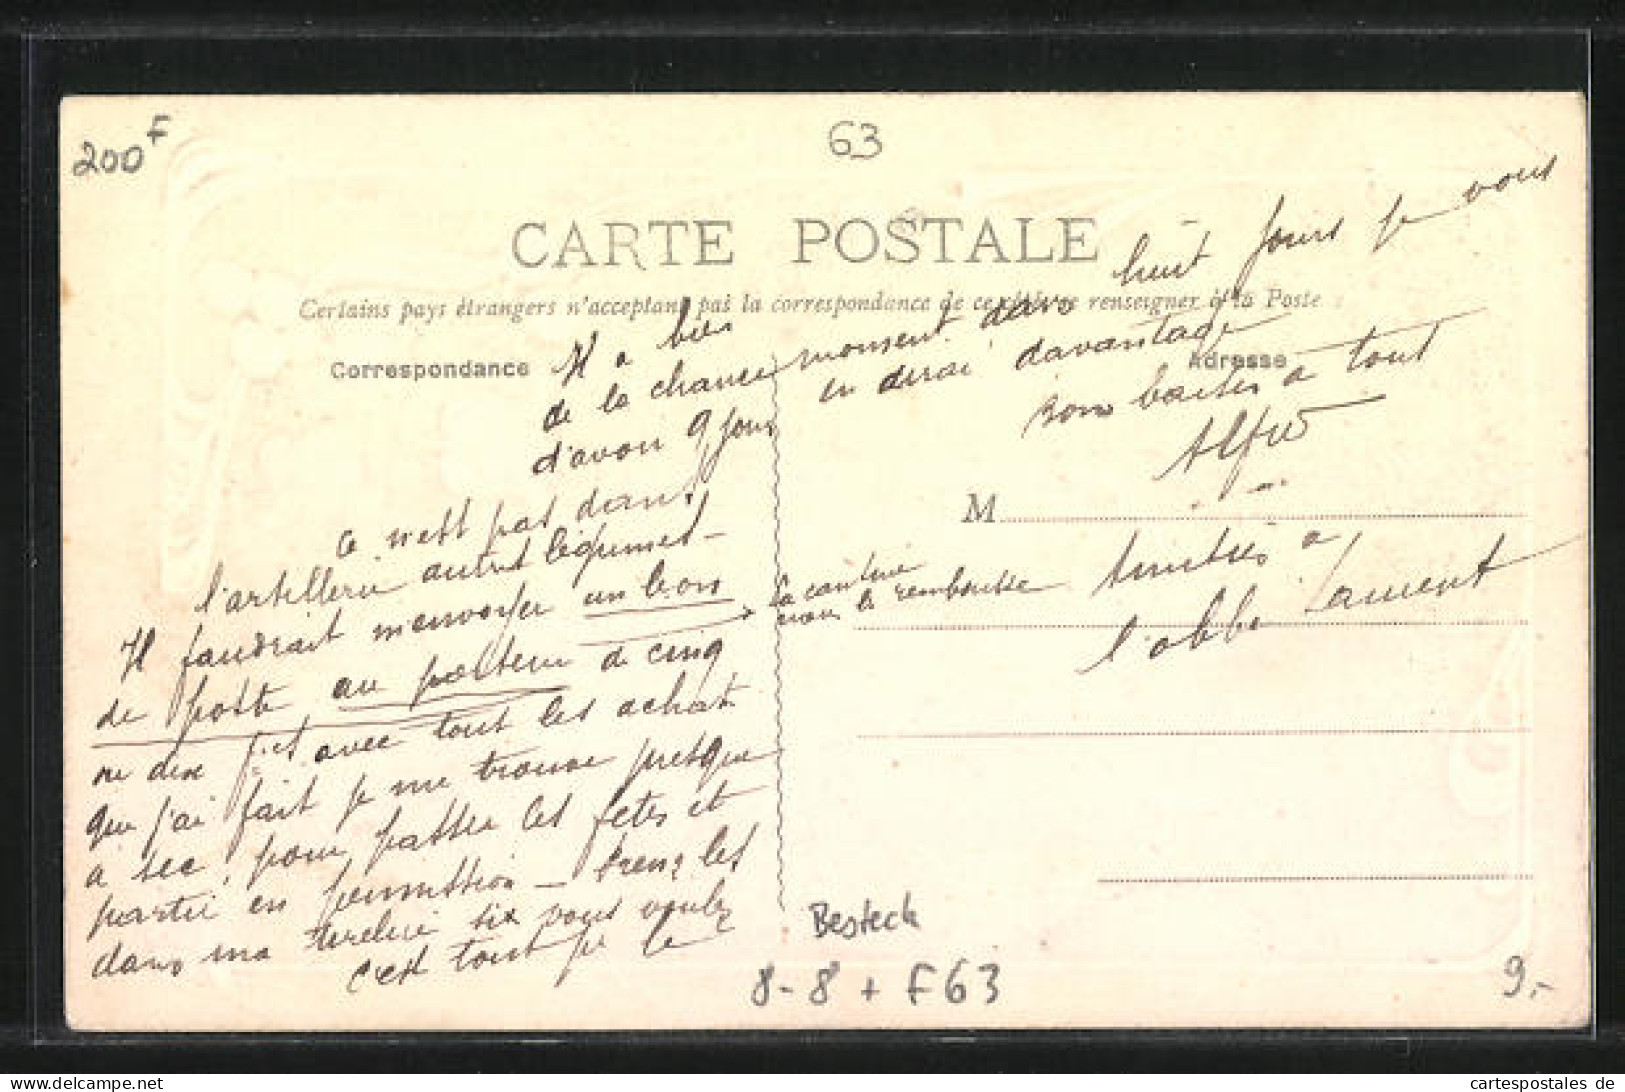 200F
63
CARTE POSTALE
Certains pays étrangers n'acceptant pas la correspondance de ce côté se renseigner à la Poste
Correspondance
Adresse
Il a bien
de la chance
d'avoir 9 jours
ce n'est pas dans
l'artillerie autres légumes -
Il faudrait m'envoyer un bon
de poste au porteur de cinq
ou dix f. et avec tout les achats
que j'ai fait je me trouve presque
à sec, pour passer les fêtes et
partir en permission - prenez les
dans ma tirelire si vous voulez
c'est tout je le
moment dans huit jours je vous
en dirai davantage
bons baisers à tout
Alfred
M
la cantine
nous le rembourse
amitiés à
l'abbé Laurent
Besteck
8-8 + F63
9.-
cartespostales de